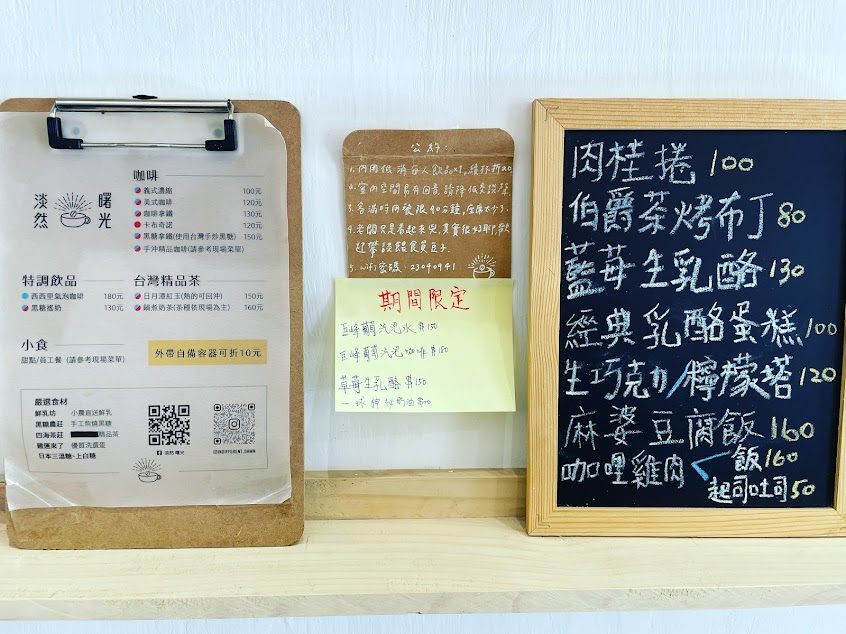 淡然
曙光
咖啡
義式濃縮 100元
美式咖啡 120元
咖啡拿鐵 130元
卡布奇諾 120元
黑糖拿鐵(使用台灣手炒黑糖) 150元
手沖精品咖啡(請參考現場菜單)
特調飲品
西西里氣泡咖啡 180元
黑糖搖奶 130元
台灣精品茶
日月潭紅玉(熱的可回沖) 150元
鍋煮奶茶(茶種依現場為主) 160元
小食
甜點/員工餐 (請參考現場菜單)
外帶自備容器可折10元
嚴選食材
鮮乳坊 小農直送鮮乳
黑糖農莊 手工柴燒黑糖
四海茶莊 精品茶
雞蛋來了 優質洗選蛋
日本三溫糖、上白糖
淡然 曙光
公約:
1. 內用低消每人飲品
2. 室內空間易有回音,請降低交談聲.
3. 客滿時用餐限90分鐘,座席太少了.
4. 老闆只是看起來兇,其實很好聊,歡
5. wifi密碼: 23040941
期間限定
巨峰葡萄汽泡水 $150
巨峰葡萄汽泡咖啡 $180
草莓生乳酪 $150
肉桂捲 100
伯爵茶烤布丁 80
藍莓生乳酪 130
經典乳酪蛋糕 100
生巧克力/檸檬塔 120
麻婆豆腐飯 160
咖哩雞肉 飯 160
起司吐司 50